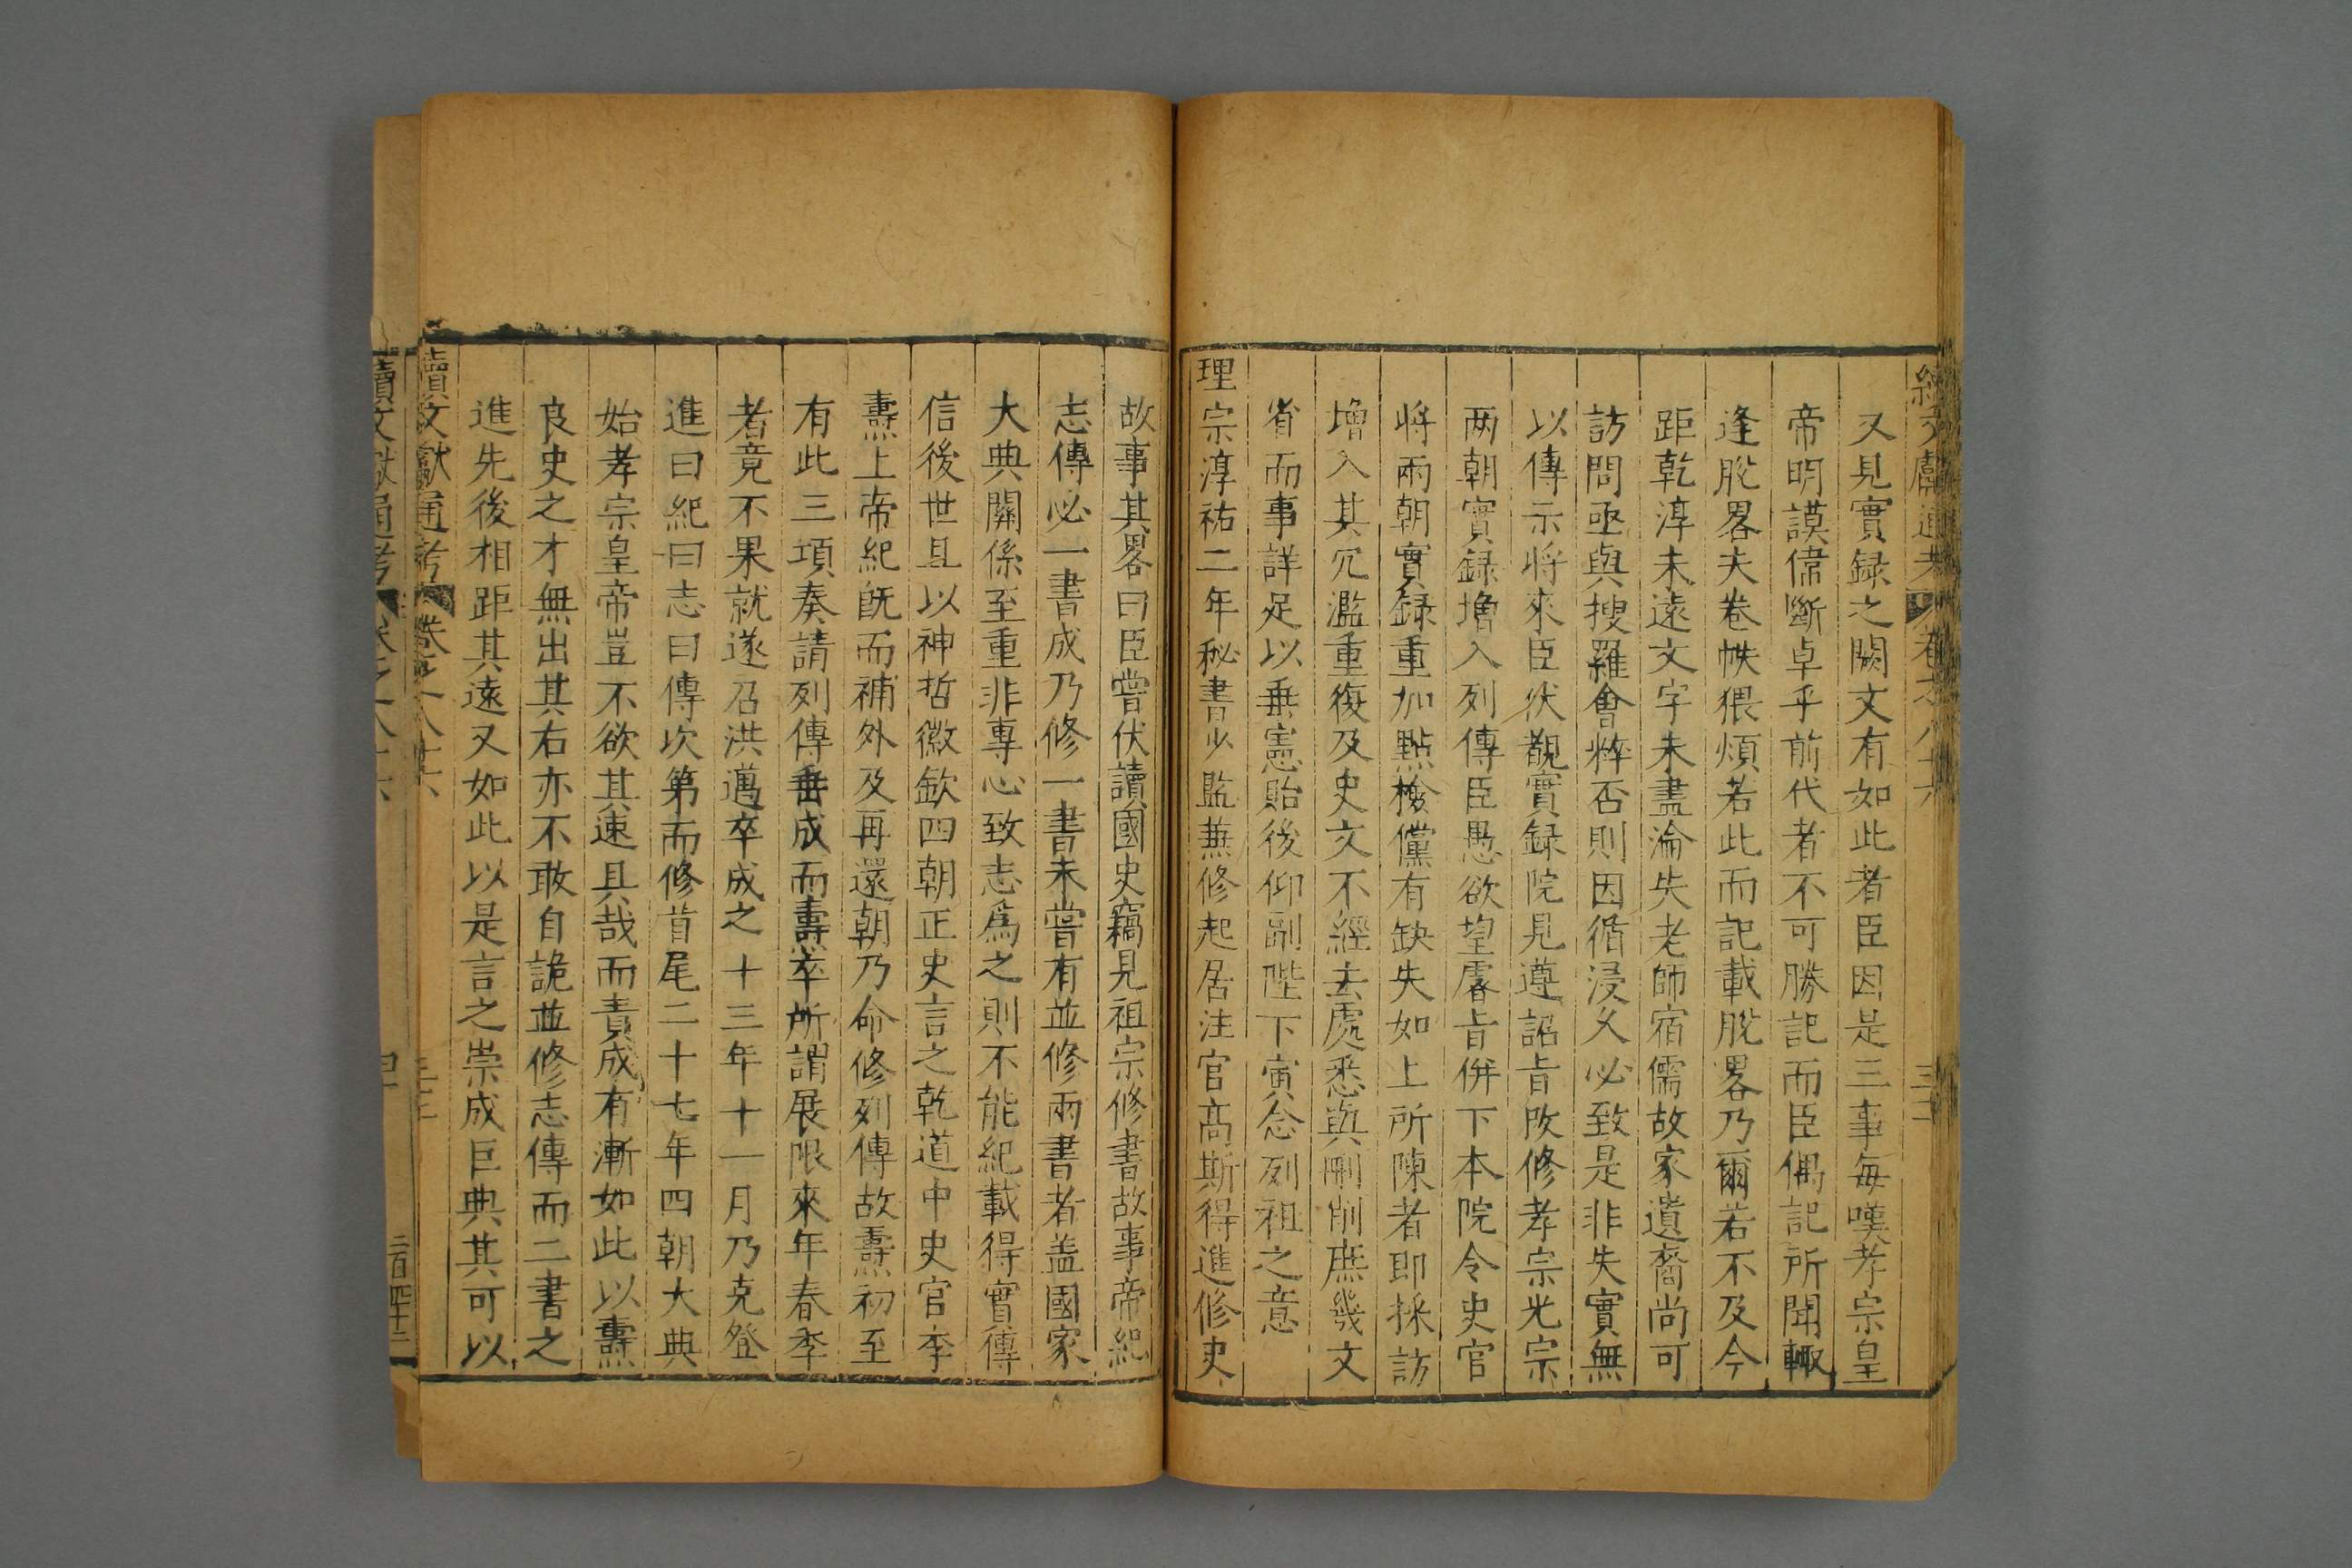 又見實録之闕文有如此者臣因是三事每嘆孝宗皇
帝明謨偉斷卓乎前代者不可勝記而臣偶記所聞輙
逢脫畧夫卷帙猥煩若此而記載脫畧乃爾若不及今
距乾淳未遠文字未盡淪失老師宿儒故家遺裔尚可
訪問亟與搜羅會粹否則因循浸久必致是非失實無
以傳示將來臣伏覩實録院見遵詔旨攺修孝宗光宗
两朝實録増入列傳臣愚欲望睿旨併下本院令史官
將兩朝實録重加㸃檢儻有缺失如上所陳者即採訪
增入其冗濫重復及史文不經去處悉與刪削庶幾文
省而事詳足以垂憲貽後仰副陛下寅念列祖之意
理宗淳祐二年秘書少監兼修起居注官高斯得進修史
故事其畧曰臣嘗伏讀國史竊見祖宗修書故事帝紀
志傳必一書成乃修一書未嘗有並修兩書者盖國家
大典關係至重非專心致志爲之則不能紀載得實傳
信後世且以神哲徽欽四朝正史言之乾道中史官李
燾上帝紀旣而補外及再還朝乃命修列傳故燾初至
有此三項奏請列傳垂成而燾卒所謂展限來年春季
者竟不果就遂召洪邁卒成之十三年十一月乃克登
進曰紀曰志曰傳次第而修首尾二十七年四朝大典
始孝宗皇帝豈不欲其速且哉而責成有漸如此以燾
良史之才無出其右亦不敢自詭並修志傳而二書之
進先後相距其遠又如此以是言之崇成巨典其可以
續文獻通考 卷之八十六
二百四十二